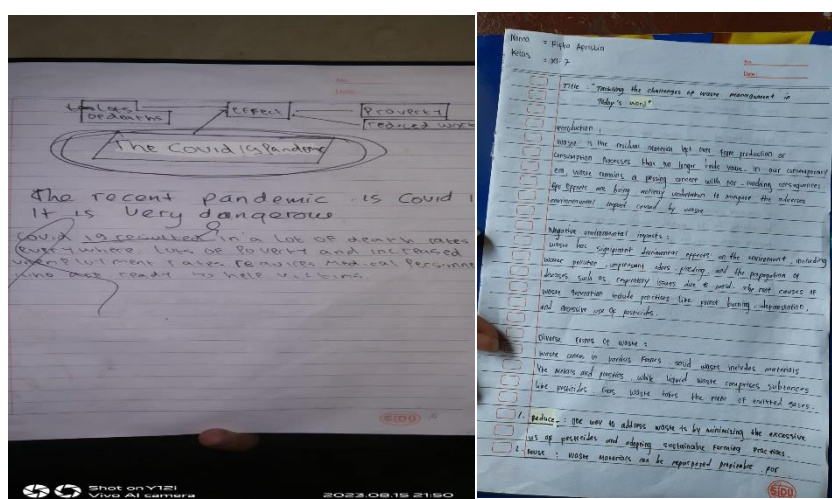 No:
Date:
of deaths
Effect
Proverty
reduced work
The Covid 19 Pandemic
The recent pandemic is Covid 1
It is very dangerous
covid 19 resulted in a lot of death rates
everywhere lots of Poverty and increased
rates medical Personne
who are ready to help victims.
SIDU
Shot on Y12i
Vivo AI camera
2023.08.15 21:50
Nama =
Kelas = XI-7
No:
Date:
Title : "Tackling the challenges of waste management in
Today's word"
Introduction :
waste is the residual material left over from production or
consumption processes that no longer value. in our contemporary
era, waste remains a pressing concern with far-reaching consequences
Efforts are being actively undertaken to mitigate the adverse
environmental impact caused by waste
Negative environmental impacts :
waste has significant effects on the environment, including
waste pollution, unpleasant odors, flooding, and the propagation of
diseases such as respiratory issues due to The root causes of
waste generation include practices like forest burning, deforestation,
and excessive use of pesticides.
Diverse Forms Of waste :
waste comes in various forms solid waste includes materials
like metals and plastics, while liquid waste comprises substances
like pesticides Gas waste takes the form of emitted gases.
1. Reduce : one way to address waste is by minimizing the excessive
us of pesticides and adopting sustainable farming practices.
2. Reuse : waste materials can be repurposed For
SIDU